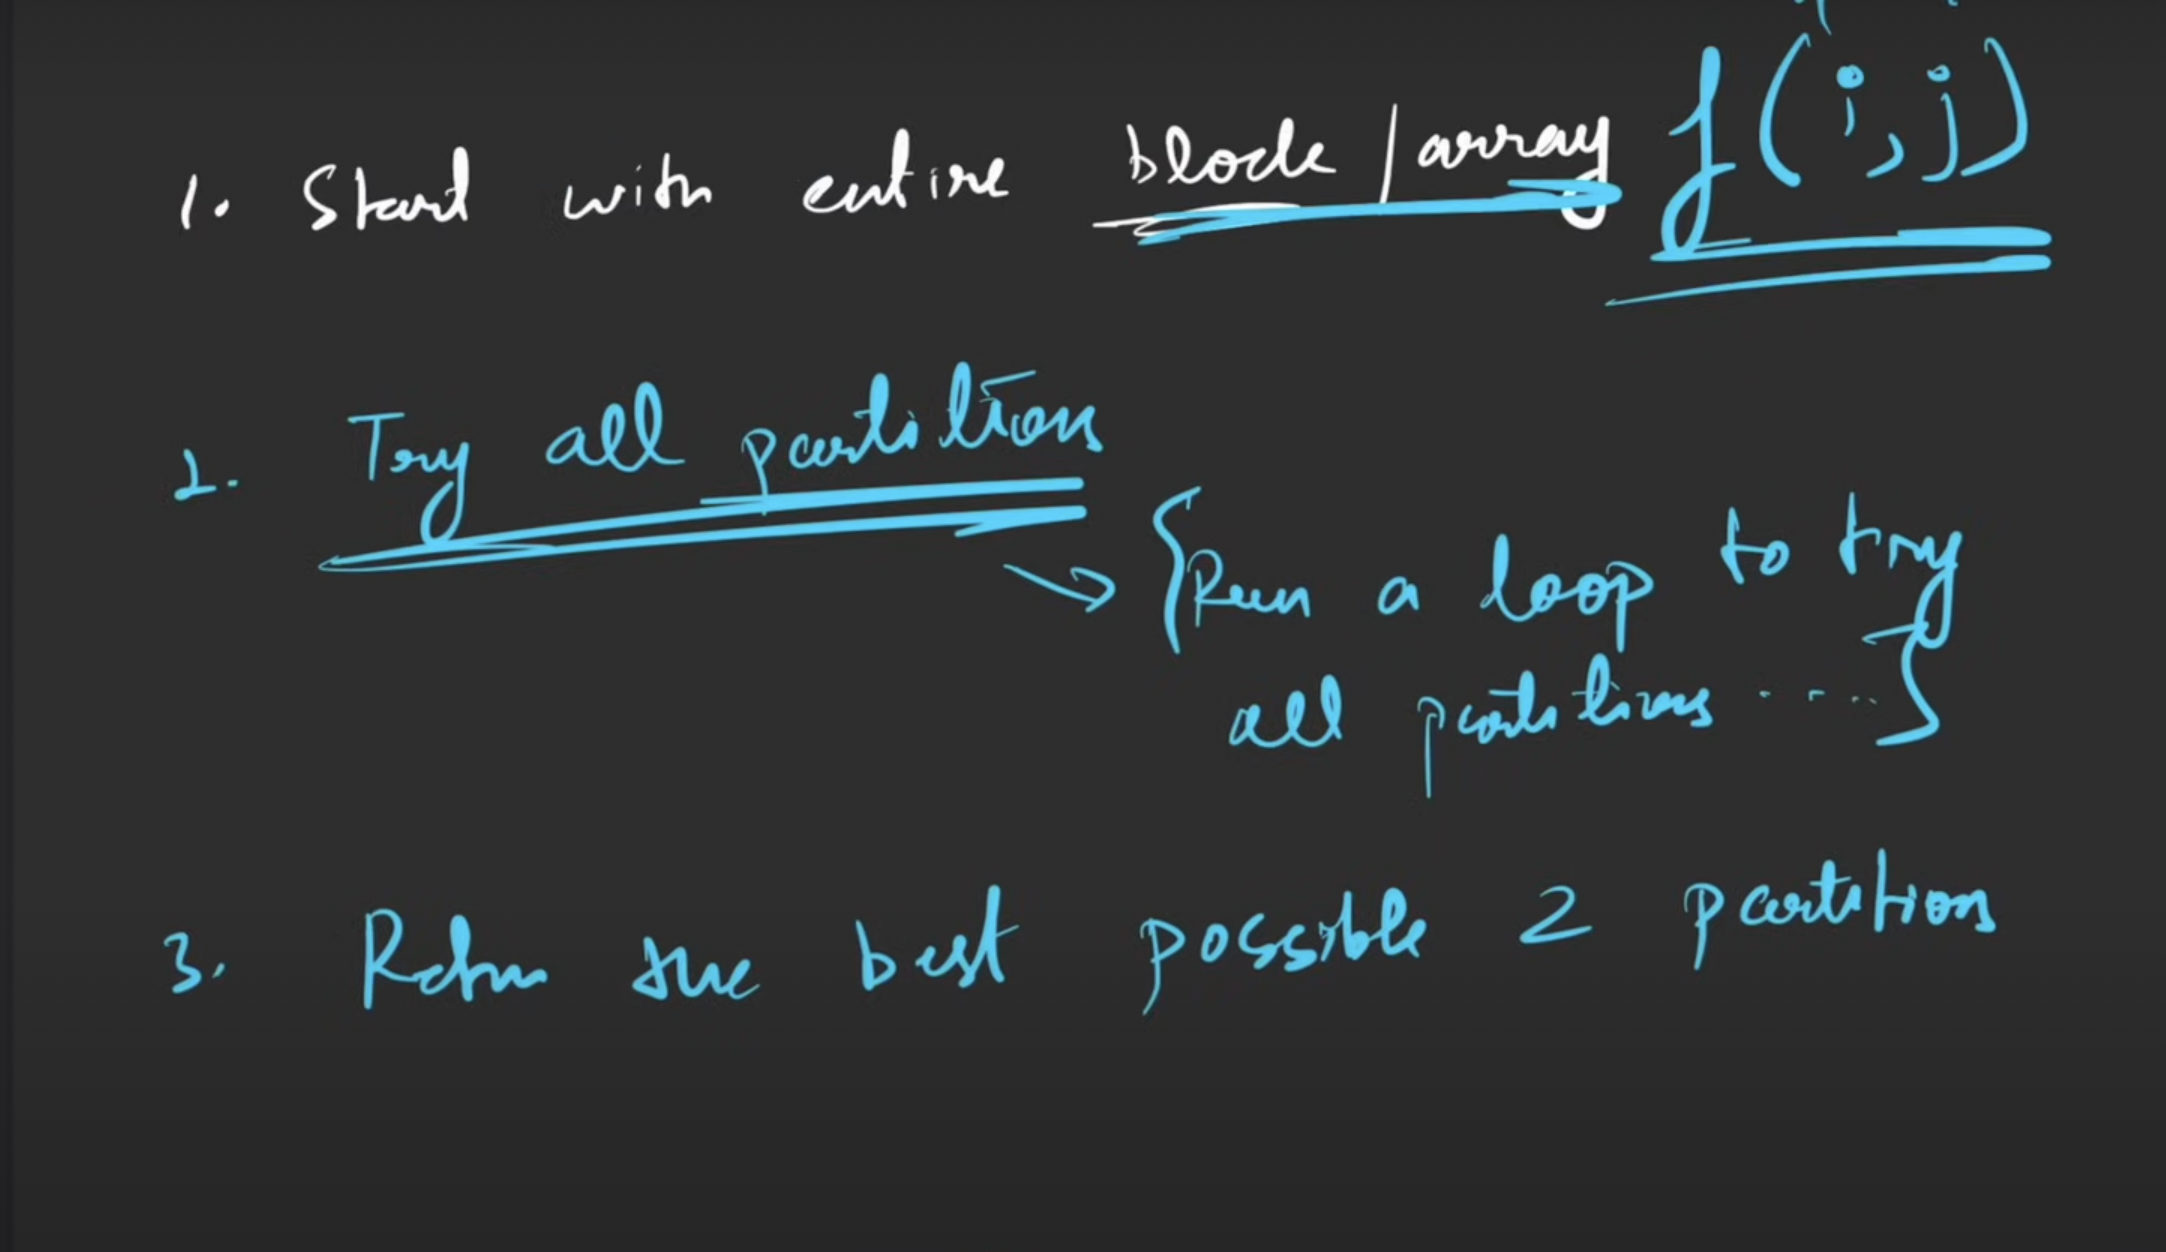 1. Start with entire block/array f(i,j)
2. Try all partitions
{Run a loop to try
all partitions ....}
3. Return the best possible 2 partition